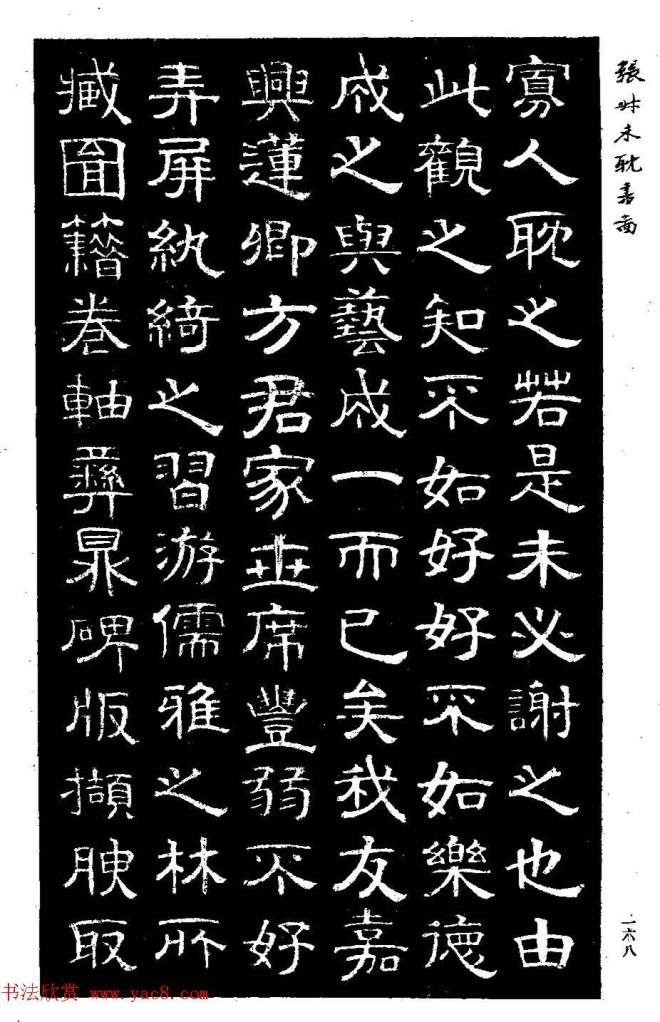 張尗未耽書啚
寡人耽之若是未必謝之也由
此觀之知不如好好不如樂德
成之與藝成一而已矣我友嘉
興蓮卿方君家世席豐弱不好
弄屏紈綺之習游儒雅之林所
臧圖籍卷軸彝鼎碑版擷腴取
一六八
书法欣赏 www.yac8.com